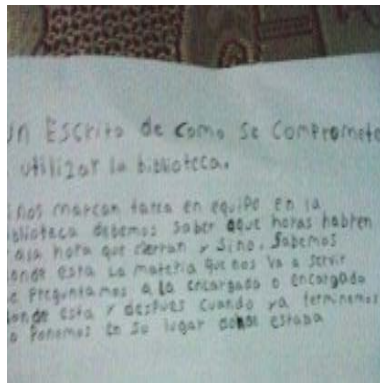 un Escrito de como se compromete
utilizar la biblioteca.
si nos marcan tarea en equipo en la
biblioteca debemos saber aque horas habren
y ala hora que cierran y sino. sabemos
donde esta la materia que nos va a servir
le preguntamos a la encargada o encargado
donde esta y despues cuando ya terminemos
lo ponemos en su lugar donde estaba